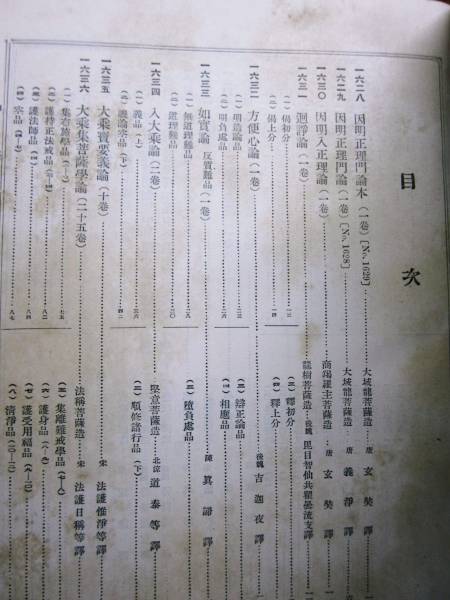 目次
一六二八 因明正理門論本（一卷）〔No. 1629〕 大域龍菩薩造 唐 玄奘譯
一六二九 因明正理門論（一卷）〔No. 1628〕 大域龍菩薩造 唐 義淨譯
一六三〇 因明入正理論（一卷） 商羯羅主菩薩造 唐 玄奘譯
一六三一 迴諍論（一卷） 龍樹菩薩造 後魏 毘目智仙共瞿曇流支譯
（一）偈初分 一三 （三）釋初分
（二）偈上分 一四 （四）釋上分
一六三二 方便心論（一卷） 後魏 吉迦夜譯
（一）明造論品 二三 （三）辯正論品
（二）明負處品 二六 （四）相應品
一六三三 如實論 反質難品（一卷） 陳 眞諦譯
（一）無道理難品 二八 （三）墮負處品
（二）道理難品 三〇
一六三四 入大乘論（二卷） 堅意菩薩造 北涼 道泰等譯
（一）義品（上） 三六 （二）順修諸行品（下）
（二）譏論空品（下） 四二
一六三五 大乘寶要義論（十卷） 宋 法護惟淨等譯
一六三六 大乘集菩薩學論（二十五卷） 法稱菩薩造 宋 法護日稱等譯
（一）集布施學品 七五 （三）集離難戒學品
（二）護持正法戒品 八二 （六）護身品
（三）護法師品 八四 （七）護受用福品
（四）空品 八七 （八）清淨品